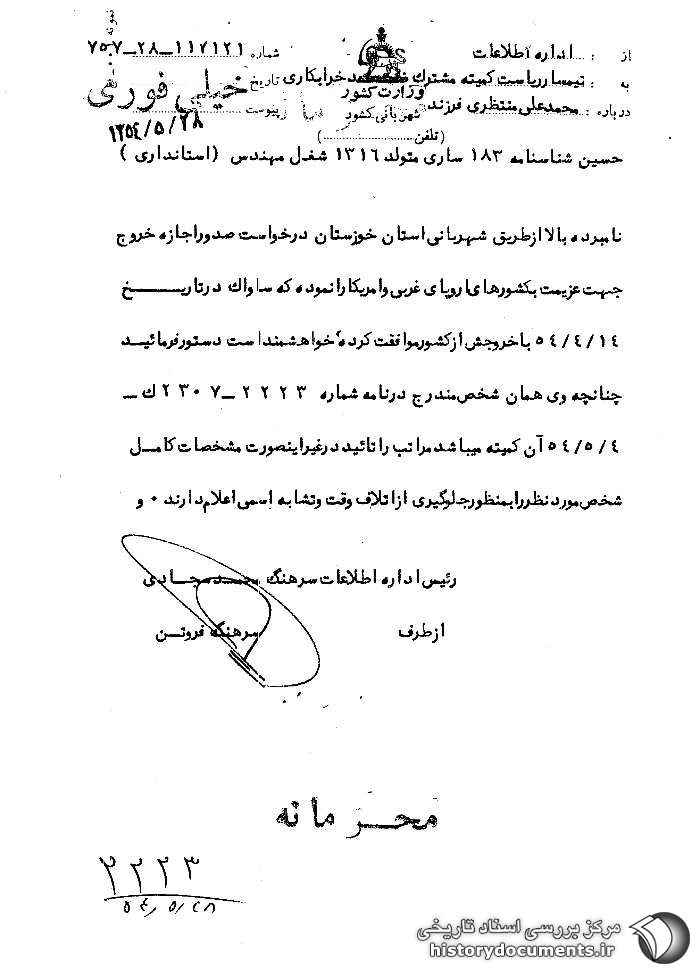 از : اداره اطلاعات شماره ۱۱۲۱۲۱-۲۸-۷۵۷
به : تیمسار ریاست کمیته مشترک ضد خرابکاری تاریخ ۱۳۵۴/۵/۲۸
خیلی فوری
وزارت کشور
شهربانی کشور
درباره : محمدعلی منتظری فرزند پیوست
(تلفن)
حسین شناسنامه ۱۸۳ ساری متولد ۱۳۱۶ شغل مهندس (استانداری)
نامبرده بالا از طریق شهربانی استان خوزستان درخواست صدور اجازه خروج
جهت عزیمت بکشورهای اروپای غربی و امریکا را نموده که ساواک در تاریخ
۵٤/٤/۱٤ با خروجش از کشور موافقت کرده خواهشمند است دستور فرمائید
چنانچه وی همان شخص مندرج در نامه شماره ۲۲۲۳-۲۳۰۷ ك -
۵٤/۵/٤ آن کمیته میباشد مراتب را تائید در غیر اینصورت مشخصات کامل
شخص مورد نظر را بمنظور جلوگیری از اتلاف وقت و تشابه اسمی اعلام دارند ۰ و
رئیس اداره اطلاعات سرهنگ
از طرف سرهنگ فروتن
محرمانه
۲۲۲۳
۵٤/۵/۲۸
مرکز بررسی اسناد تاریخی
historydocuments.ir